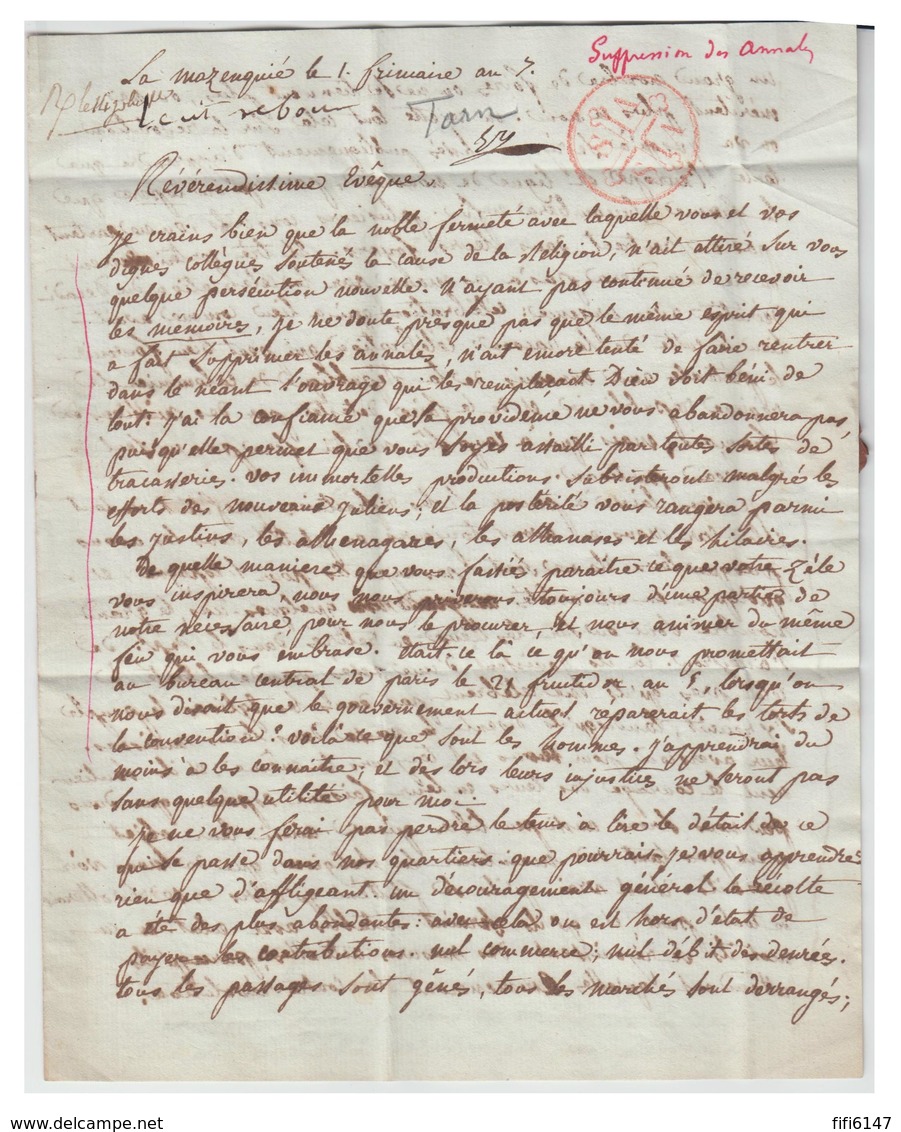 Suppression des Annales
La mazenquié le 1. frimaire an 7.
Tarn
Révérendissime Evêque
Je crains bien que la noble fermeté avec laquelle vous et vos
dignes collègues soutenés la cause de la Religion, n'ait attiré sur vous
quelque persécution nouvelle. N'ayant pas continué de recevoir
les mémoires, je ne doute presque pas que le même esprit qui
a fait supprimer les annales, n'ait encore tenté de faire rentrer
dans le néant l'ouvrage qui les remplaçait. Dieu soit béni de
tout. j'ai la confiance que sa providence ne vous abandonnera pas,
puisqu'elle permet que vous soyés assailli par toutes sortes de
tracasseries. vos immortelles productions subsisteront malgré les
efforts des nouveaux juliens; et la postérité vous rangera parmi
les justins, les athenagores, les athanases et les hilaires.
De quelle maniere que vous fassiés paraître ce que votre zèle
vous inspirera, nous nous priverons toujours d'une partie de
notre necessaire, pour nous le procurer, et nous animer du même
feu qui vous embrase. était-ce là ce qu'on nous promettait
au bureau central de paris le 21 fructidor an 5, lorsqu'on
nous disait que le gouvernement actuel réparerait les torts de
la convention? voilà ce que sont les hommes. j'apprendrai du
moins à les connaître; et dés lors leurs injustices ne seront pas
sans quelque utilité pour moi.
Je ne vous ferai pas perdre le tems à lire le détail de ce
qui se passe dans nos quartiers. que pourrais-je vous apprendre
rien que d'affligeant. un découragement général la récolte
a été des plus abondantes: avec cela on est hors d'état de
payer les contributions. nul commerce; nul débit des denrées.
tous les passages sont gênés, tous les marchés sont derrangés;
fifi6147